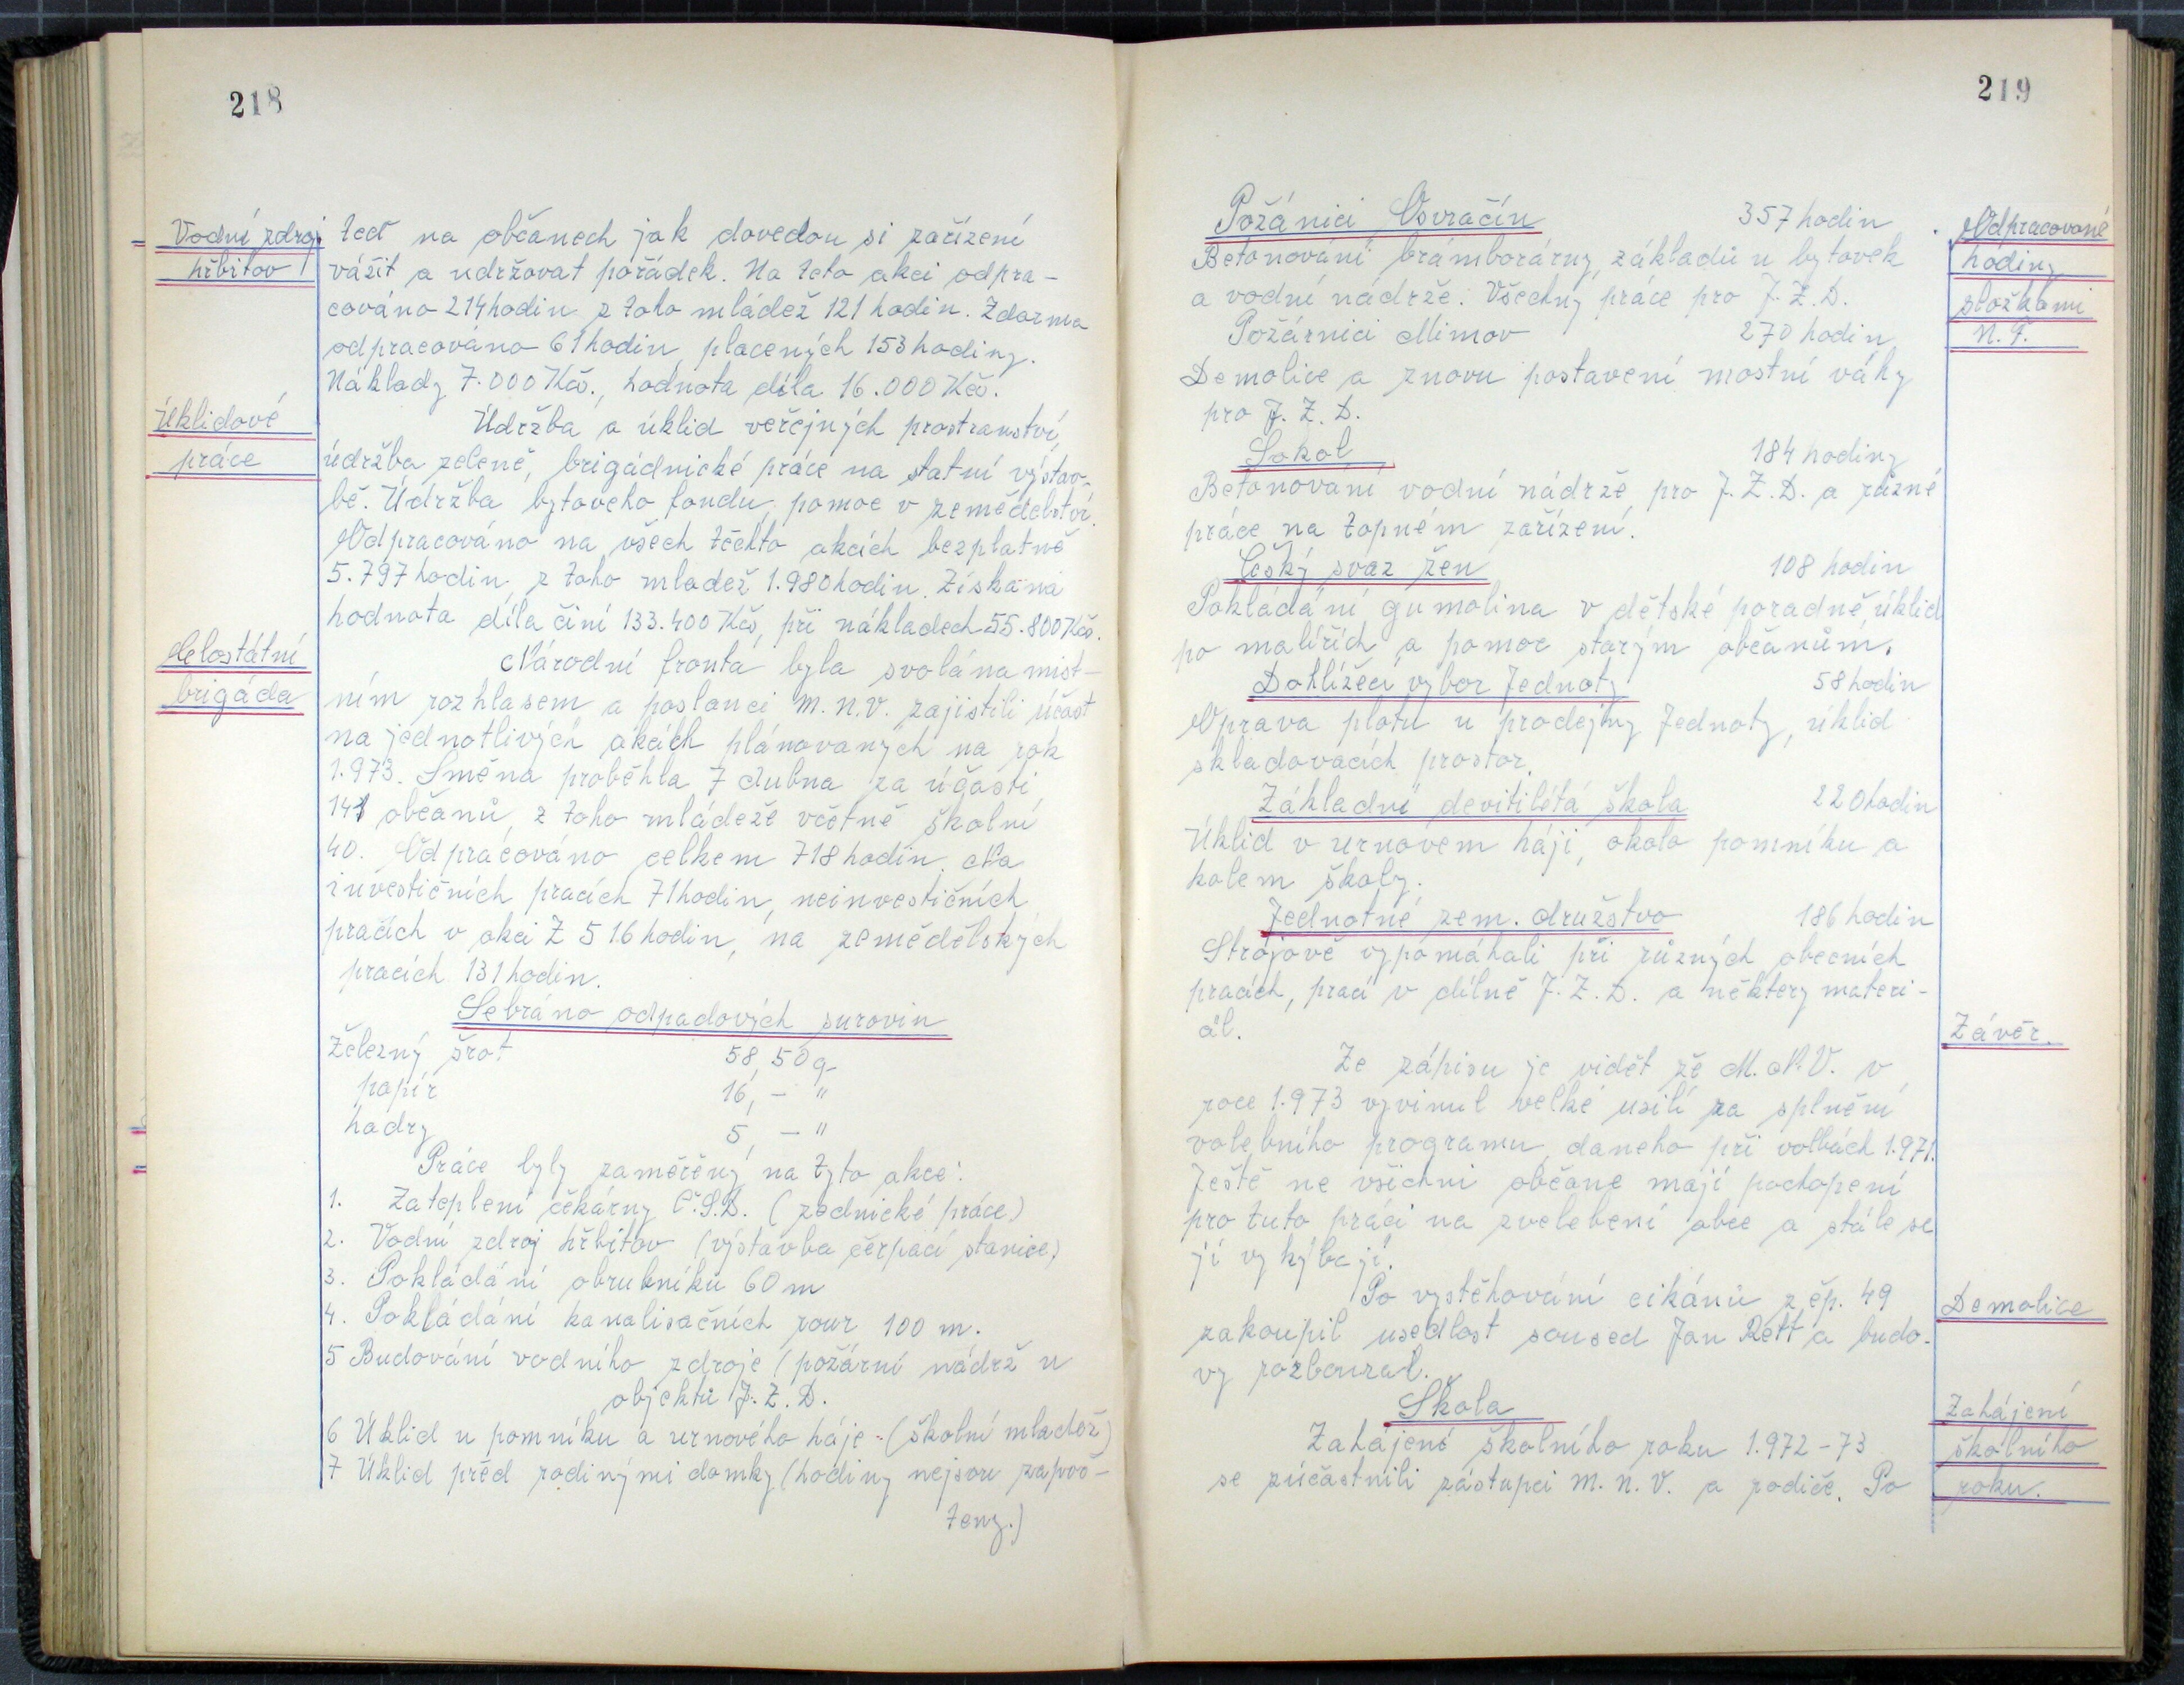 218
Vodní zdroj
hřbitov
teď na občanech jak dovedou si zařízení
vážit a udržovat pořádek. Na teto akci odpra-
cováno 214 hodin z toho mládež 121 hodin. Zdarma
odpracováno 61 hodin, placených 153 hodiny.
Náklady 7.000 Kčs., hodnota díla 16.000 Kčs.
Úklidové
práce
Údržba a úklid veřejných prostranství,
údržba zeleně, brigádnické práce na statní výstav-
bě. Údržba bytoveho fondu, pomoc v zemědělství.
Odpracováno na všech těchto akcích bezplatně
5.797 hodin, z toho mladež 1.980 hodin. Získaná
hodnota díla činí 133.400 Kčs, při nákladech 55.800 Kčs.
Celostátní
brigáda
Národní fronta byla svolána míst-
ním rozhlasem a poslanci M.N.V. zajistili účast
na jednotlivých akcích plánovaných na rok
1.973. Směna proběhla 7 dubna za účasti
141 občanů, z toho mládeže včetně školní
40. Odpracováno celkem 718 hodin. Na
investičních pracích 71 hodin, neinvestičních
pracích v akci Z 516 hodin, na zemědělských
pracích 131 hodin.
Sebráno odpadových surovin
Železný šrot 58,50 q
papír 16,- "
hadry 5,- "
Práce byly zaměřeny na tyto akce:
1. Zateplení čekárny Č.S.D. (zednické práce)
2. Vodní zdroj hřbitov (výstavba čerpací stanice)
3. Pokládání obrubníků 60 m
4. Pokládání kanalisačních rour 100 m.
5 Budování vodního zdroje (požární nádrž u
objektů J.Z.D.
6 Úklid u pomníku a urnového háje (školní mladež)
7 Úklid před rodinými domky (hodiny nejsou započ-
teny.)
219
Požánici Osvračín 357 hodin
Odpracované
hodiny
složkami
N.F.
Betonování brámborárny, základů u bytovek
a vodní nádrže. Všechny práce pro J.Z.D.
Požárnici Mimov 270 hodin
Demolice a znovu postavení mostní váhy
pro J.Z.D.
Sokol 184 hodiny
Betonování vodní nádrže pro J.Z.D. a různé
práce na topném zařízení.
Český svaz žen 108 hodin
Pokládání gumolina v dětské poradně, úklid
po malířích a pomoc starým občanům.
Dohlížecí výbor Jednoty 58 hodin
Oprava plotu u prodejny Jednoty, úklid
skladovacích prostor.
Základní devitiletá škola 220 hodin
Úklid v urnovem háji, okolo pomníku a
kolem školy.
Jednotné zem. družstvo 186 hodin
Strojově vypomáhali při různých obecních
pracích, prací v dílně J.Z.D. a některy materi-
ál.
Závěr.
Ze zápisu je vidět že M.N.V. v
roce 1.973 vyvinul velké usilí za splnění
volebního programu daneho při volbách 1.971.
Ještě ne všichni občane mají pochopení
pro tuto práci na zvelebení obce a stále se
jí vyhýbají.
Demolice
Po vystěhování cikánů z čp. 49
zakoupil usedlost soused Jan Rett a budo-
vy rozboural.
Škola
Zahájení
školního
roku.
Zahájení školního roku 1.972-73
se zúčastnili zástupci M.N.V. a rodiče. Po